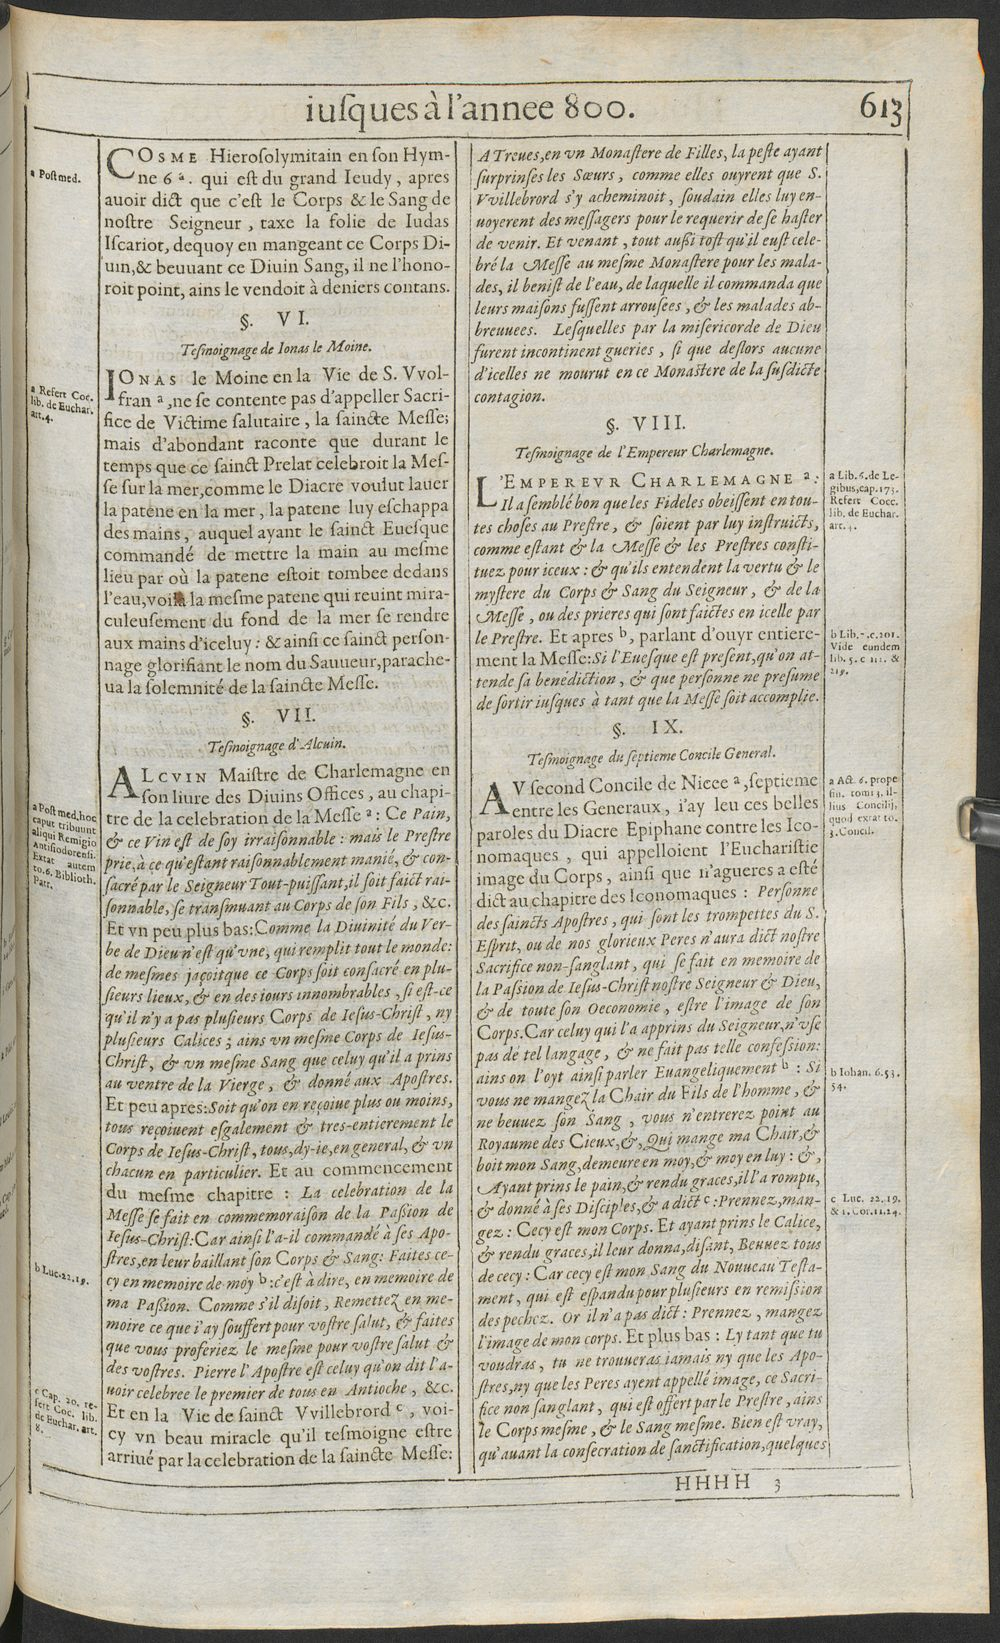 iuſques à l'annee 800.
613
a Poſt med.
COSME Hieroſolymitain en ſon Hym-
ne 6 a. qui eſt du grand Ieudy, apres
auoir dict que c'eſt le Corps & le Sang de
noſtre Seigneur, taxe la folie de Iudas
Iſcariot, dequoy en mangeant ce Corps Di-
uin, & beuuant ce Diuin Sang, il ne l'hono-
roit point, ains le vendoit à deniers contans.
§. VI.
Teſmoignage de Ionas le Moine.
a Refert Coc.
lib. de Euchar.
art. 4.
IONAS le Moine en la Vie de S. Vvol-
fran a, ne ſe contente pas d'appeller Sacri-
fice de Victime ſalutaire, la ſaincte Meſſe;
mais d'abondant raconte que durant le
temps que ce ſainct Prelat celebroit la Meſ-
ſe ſur la mer, comme le Diacre voulut lauer
la patene en la mer, la patene luy eſchappa
des mains, auquel ayant le ſainct Eueſque
commandé de mettre la main au meſme
lieu par où la patene eſtoit tombee dedans
l'eau, voila la meſme patene qui reuint mira-
culeuſement du fond de la mer ſe rendre
aux mains d'iceluy: & ainſi ce ſainct perſon-
nage glorifiant le nom du Sauueur, parache-
ua la ſolemnité de la ſaincte Meſſe.
§. VII.
Teſmoignage d'Alcuin.
a Poſt med, hoc
caput tribuunt
aliqui Remigio
Antiſiodorenſi.
Extat autem
to. 6. Biblioth.
Patr.
ALCVIN Maiſtre de Charlemagne en
ſon liure des Diuins Offices, au chapi-
tre de la celebration de la Meſſe a: Ce Pain,
& ce Vin eſt de ſoy irraiſonnable: mais le Preſtre
prie, à ce qu'eſtant raiſonnablement manié, & con-
ſacré par le Seigneur Tout-puiſſant, il ſoit faict rai-
ſonnable, ſe tranſmuant au Corps de ſon Fils, &c.
Et vn peu plus bas: Comme la Diuinité du Ver-
be de Dieu n'eſt qu'vne, qui remplit tout le monde:
de meſmes jaçoitque ce Corps ſoit conſacré en plu-
ſieurs lieux, & en des iours innombrables, ſi eſt-ce
qu'il n'y a pas pluſieurs Corps de Ieſus-Chriſt, ny
pluſieurs Calices; ains vn meſme Corps de Ieſus-
Chriſt, & vn meſme Sang que celuy qu'il a prins
au ventre de la Vierge, & donné aux Apoſtres.
Et peu apres: Soit qu'on en reçoiue plus ou moins,
tous reçoiuent eſgalement & tres-entierement le
Corps de Ieſus-Chriſt, tous, dy-ie, en general, & vn
chacun en particulier. Et au commencement
du meſme chapitre: La celebration de la
Meſſe ſe fait en commemoraiſon de la Paſſion de
Ieſus-Chriſt: Car ainſi l'a-il commandé à ſes Apo-
ſtres, en leur baillant ſon Corps & Sang: Faites ce-
cy en memoire de moy b: c'eſt à dire, en memoire de
ma Paſſion. Comme s'il diſoit, Remettez en me-
moire ce que i'ay ſouffert pour voſtre ſalut, & faites
que vous proferiez le meſme pour voſtre ſalut &
des voſtres. Pierre l'Apoſtre eſt celuy qu'on dit l'a-
uoir celebree le premier de tous en Antioche, &c.
Et en la Vie de ſainct Vvillebrord c, voi-
cy vn beau miracle qu'il teſmoigne eſtre
arriué par la celebration de la ſaincte Meſſe:
b Luc. 22. 19.
c Cap. 20. re-
fert Coc. lib.
de Euchar. art.
8.
A Treues, en vn Monaſtere de Filles, la peſte ayant
ſurprinſes les Sœurs, comme elles ouyrent que S.
Vvillebrord s'y acheminoit, ſoudain elles luy en-
uoyerent des meſſagers pour le requerir de ſe haſter
de venir. Et venant, tout auſſi toſt qu'il euſt cele-
bré la Meſſe au meſme Monaſtere pour les mala-
des, il beniſt de l'eau, de laquelle il commanda que
leurs maiſons fuſſent arrouſees, & les malades ab-
breuuees. Leſquelles par la miſericorde de Dieu
furent incontinent gueries, ſi que deſlors aucune
d'icelles ne mourut en ce Monaſtere de la ſuſdicte
contagion.
§. VIII.
Teſmoignage de l'Empereur Charlemagne.
L'EMPEREVR CHARLEMAGNE a:
Il a ſemblé bon que les Fideles obeiſſent en tou-
tes choſes au Preſtre, & ſoient par luy inſtruicts,
comme eſtant & la Meſſe & les Preſtres conſti-
tuez pour iceux: & qu'ils entendent la vertu & le
myſtere du Corps & Sang du Seigneur, & de la
Meſſe, ou des prieres qui ſont faictes en icelle par
le Preſtre. Et apres b, parlant d'ouyr entiere-
ment la Meſſe: Si l'Eueſque eſt preſent, qu'on at-
tende ſa benediction, & que perſonne ne preſume
de ſortir iuſques à tant que la Meſſe ſoit accomplie.
a Lib. 6. de Le-
gibus, cap. 173.
Refert Cocc.
lib. de Euchar.
art. 4.
b Lib. . c. 201.
Vide eundem
lib. 5. c &
219.
§. IX.
Teſmoignage du ſeptieme Concile General.
AV ſecond Concile de Nicee a, ſeptieme
entre les Generaux, i'ay leu ces belles
paroles du Diacre Epiphane contre les Ico-
nomaques, qui appelloient l'Euchariſtie
image du Corps, ainſi que n'agueres a eſté
dict au chapitre des Iconomaques: Perſonne
des ſaincts Apoſtres, qui ſont les trompettes du S.
Eſprit, ou de nos glorieux Peres n'aura dict noſtre
Sacrifice non-ſanglant, qui ſe fait en memoire de
la Paſsion de Ieſus-Chriſt noſtre Seigneur & Dieu,
& de toute ſon Oeconomie, eſtre l'image de ſon
Corps. Car celuy qui l'a apprins du Seigneur, n'vſe
pas de tel langage, & ne fait pas telle confeſſion:
ains on l'oyt ainſi parler Euangeliquement b: Si
vous ne mangez la Chair du Fils de l'homme, &
ne beuuez ſon Sang, vous n'entrerez point au
Royaume des Cieux, &, Qui mange ma Chair, &
boit mon Sang, demeure en moy, & moy en luy: &,
Ayant prins le pain, & rendu graces, il l'a rompu,
& donné à ſes Diſciples, & a dict c: Prennez, man-
gez: Cecy eſt mon Corps. Et ayant prins le Calice,
& rendu graces, il leur donna, diſant, Beuuez tous
de cecy: Car cecy eſt mon Sang du Nouueau Teſta-
ment, qui eſt eſpandu pour pluſieurs en remiſsion
des pechez. Or il n'a pas dict: Prennez, mangez
l'image de mon corps. Et plus bas: Ly tant que tu
voudras, tu ne trouueras iamais ny que les Apo-
ſtres, ny que les Peres ayent appellé image, ce Sacri-
fice non ſanglant, qui eſt offert par le Preſtre, ains
le Corps meſme, & le Sang meſme. Bien eſt vray,
qu'auant la conſecration de ſanctification, quelques
a Act. 6. prope
fin. tomi 3. il-
lius Concilij,
quod extat to.
3. Concil.
b Iohan. 6. 53.
54.
c Luc. 22. 19.
& 1. Cor. 11. 24.
HHHH 3